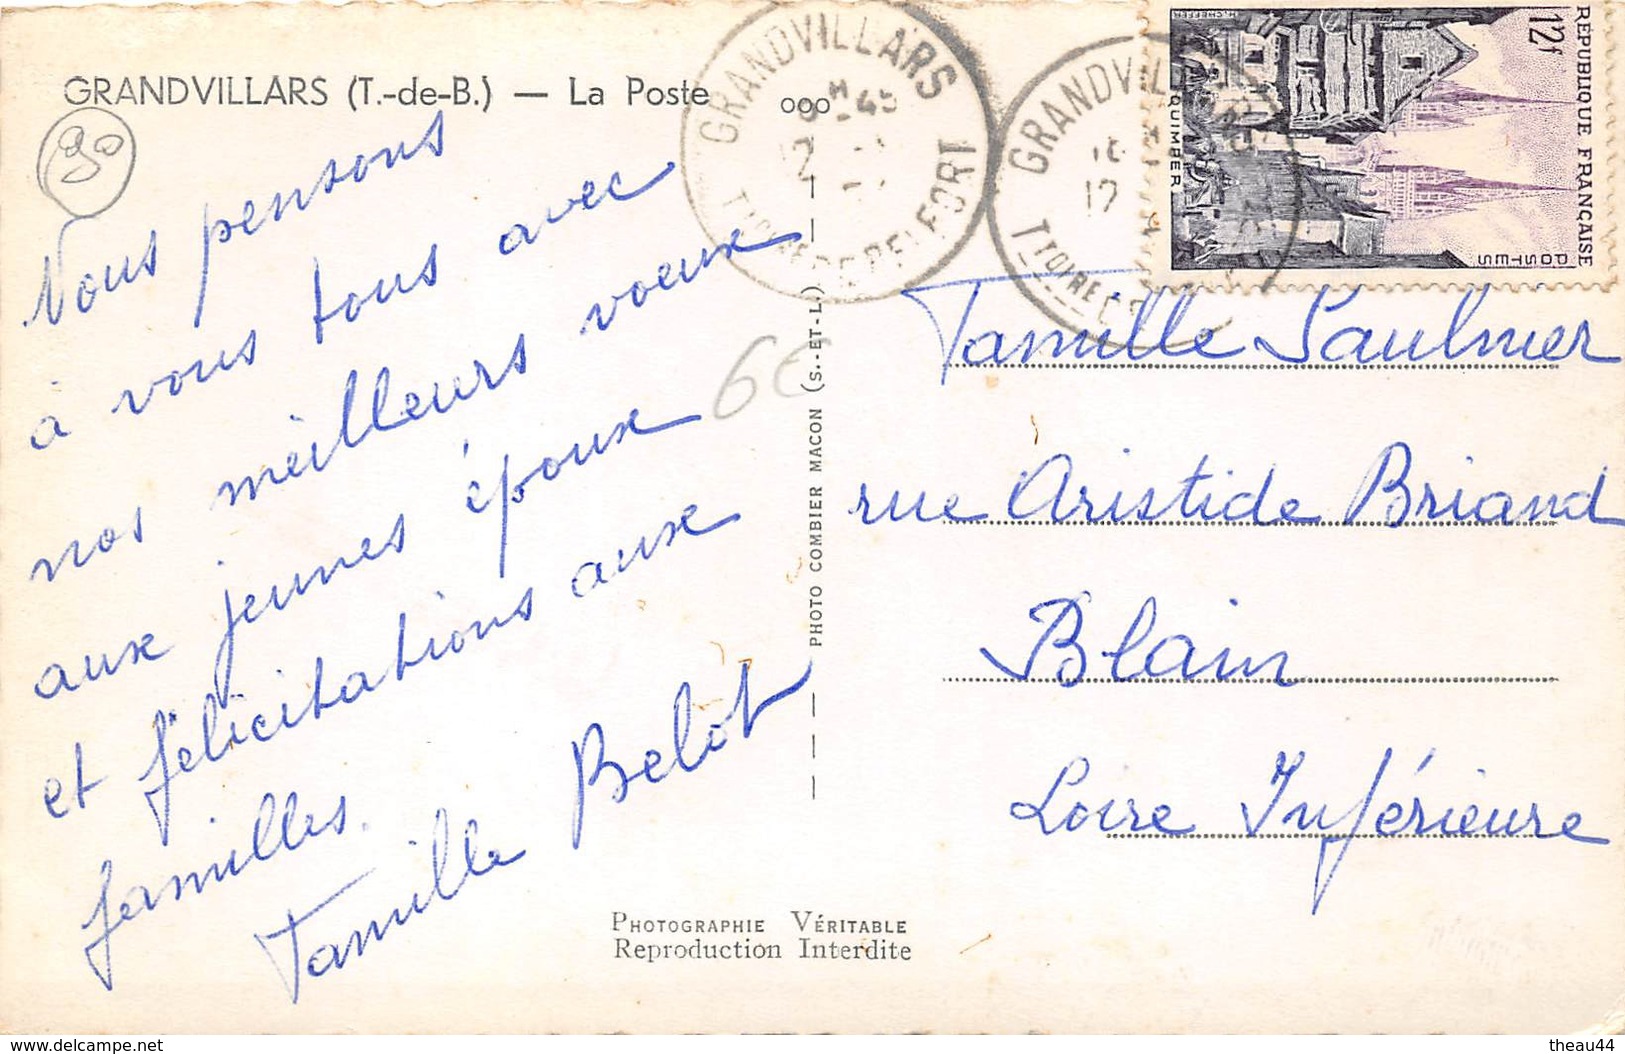 GRANDVILLARS (T.-de-B.) — La Poste
90
Nous pensons
à vous tous avec
nos meilleurs voeux
aux jeunes époux
et félicitations aux
familles.
Famille Belot
6€
PHOTO COMBIER MACON (S.-ET-L.)
PHOTOGRAPHIE VÉRITABLE
Reproduction Interdite
GRANDVILLARS
TTOIRE DE BELFORT
GRANDVILLARS
TTOIRE
12f
REPUBLIQUE FRANÇAISE
POSTES
QUIMPER
H. CHEFFER
Famille Saulnier
rue Aristide Briand
Blain
Loire Inférieure
www.delcampe.net
theau44